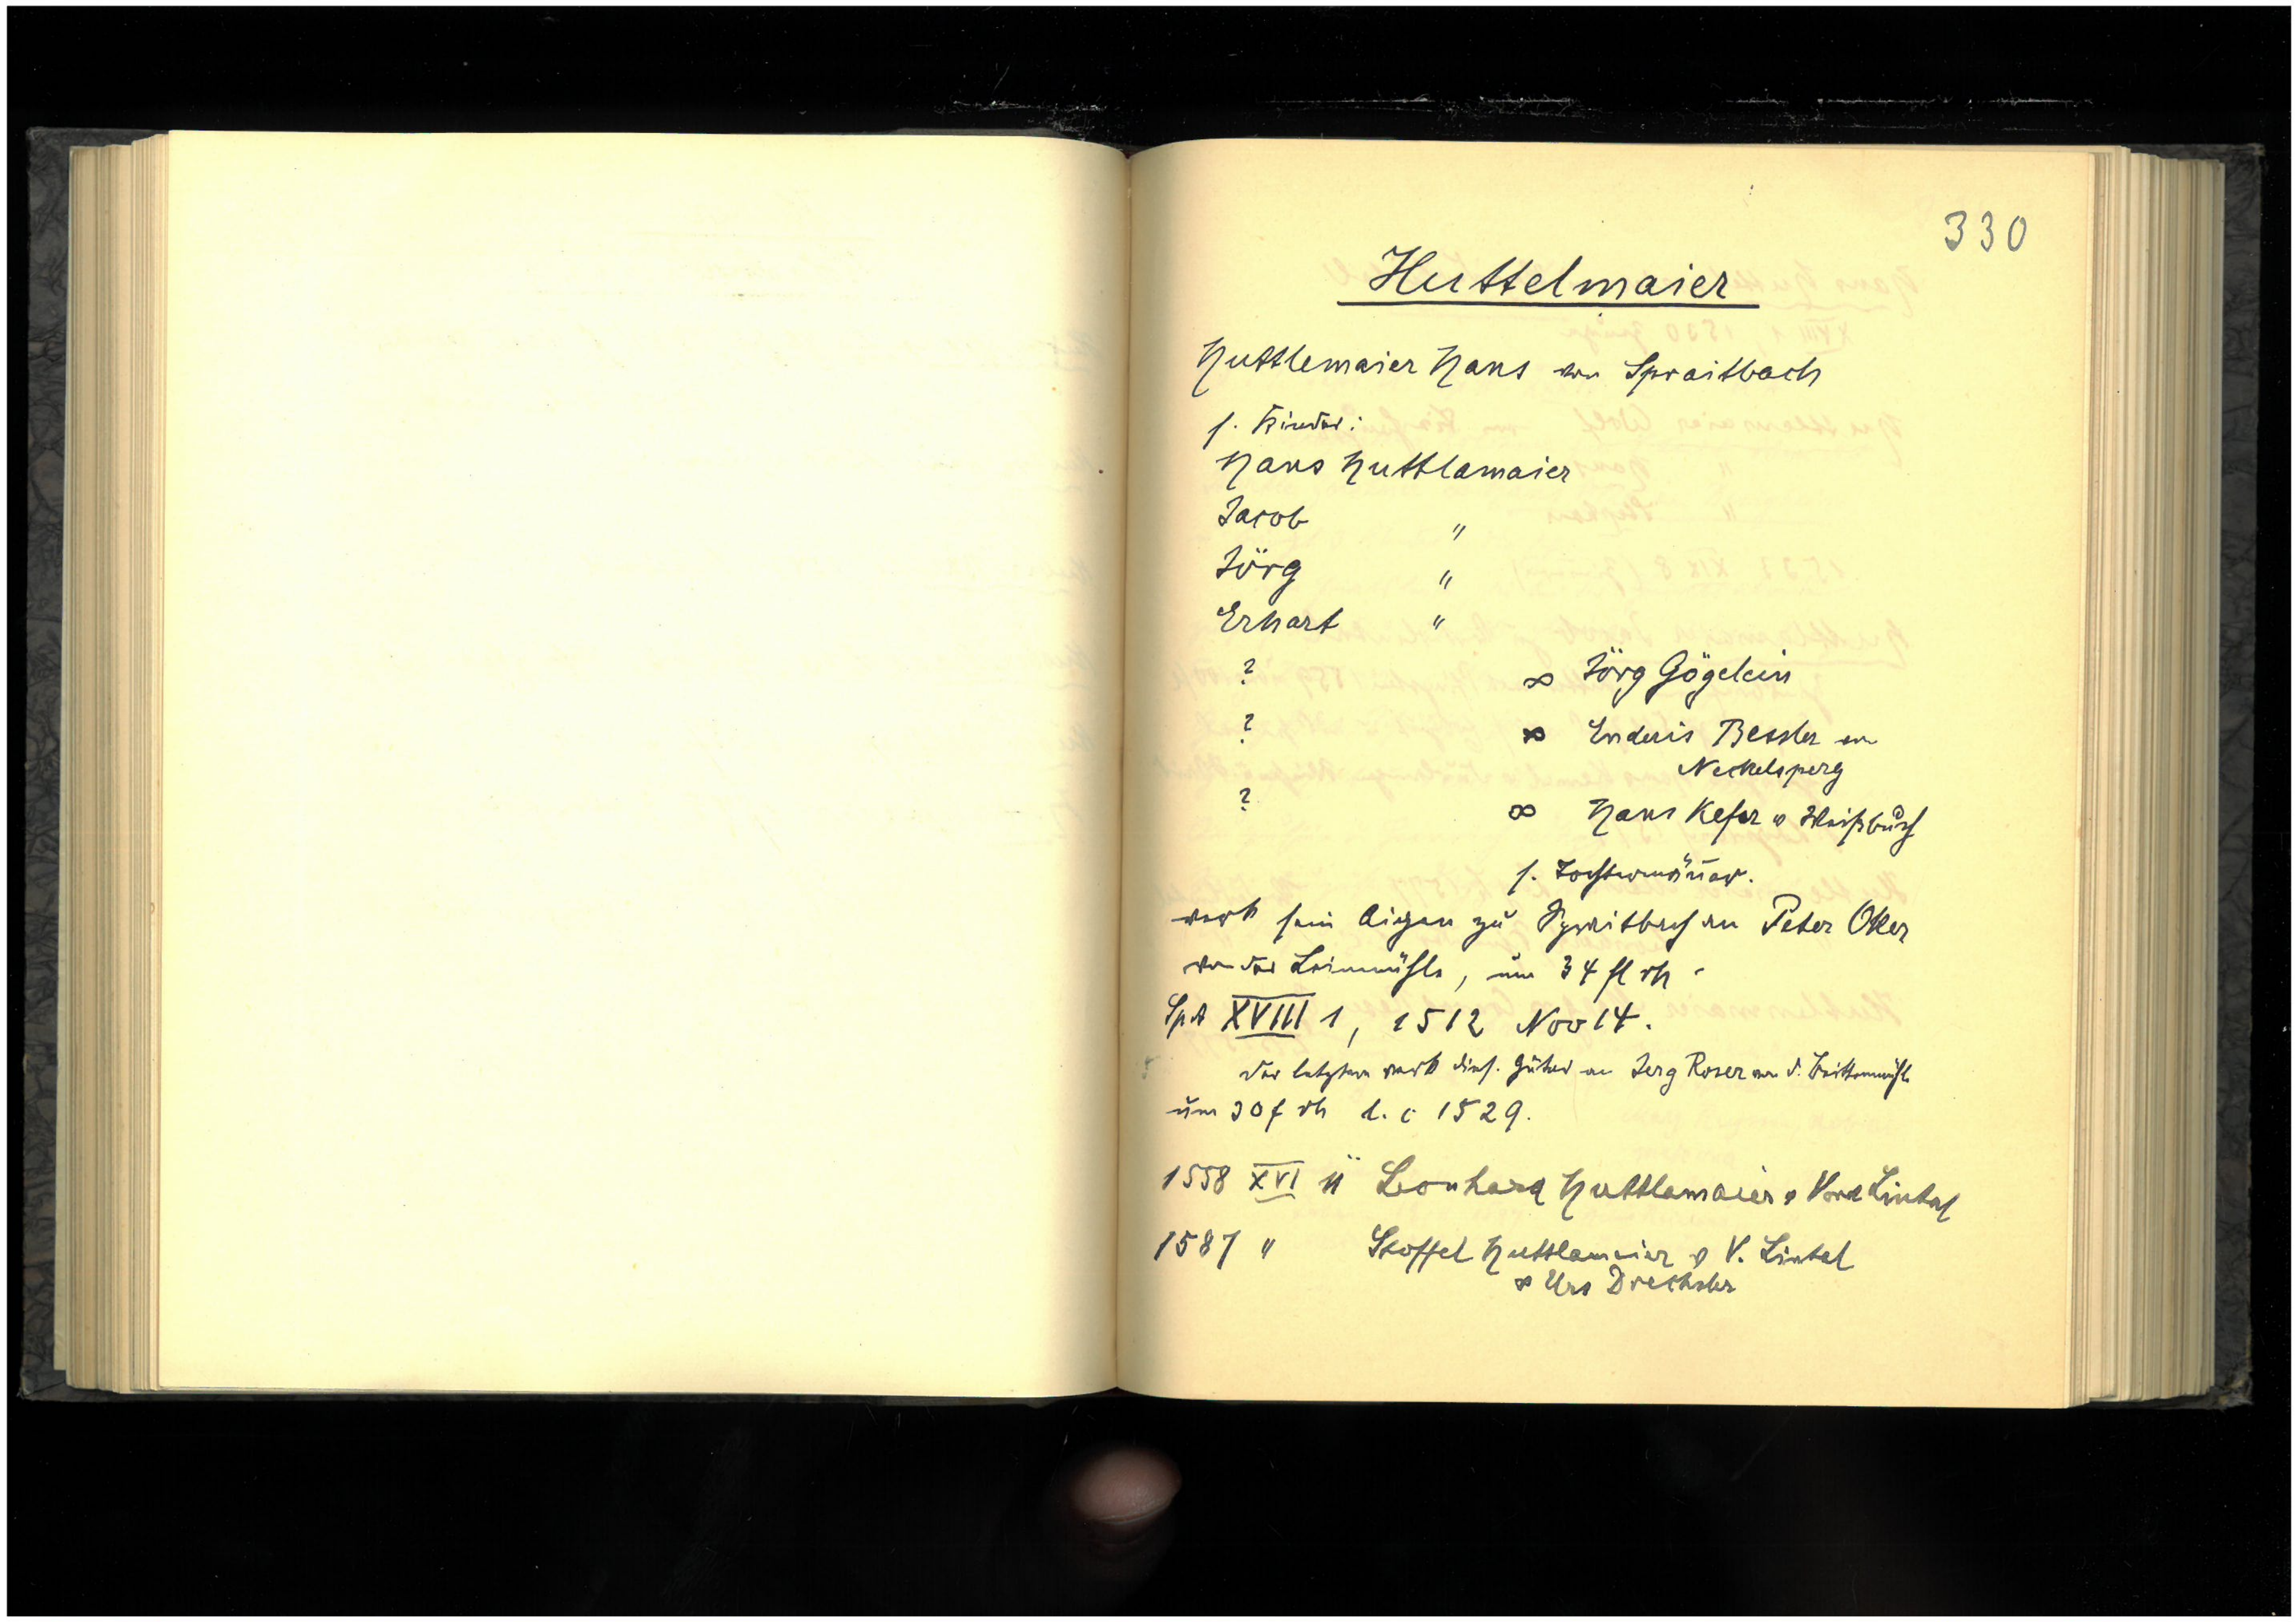 330
Huttelmaier
Huttlemaier Hans von Spraitbach
s. Kinder:
Hans Huttlamaier
Jacob "
Jörg "
Erhart "
? ∞ Jörg Gögelein
? ∞ Enderis Bessler von
Neckelsperg
? ∞ Hans Kefer v Weißbuch
s. Tochtermänner.
verk sein Aigen zu Spraitbach an Peter
von der Leinmühle, um 34 fl rh.
SpA XVIII 1, 1512 Nov 14.
der letztere verk dies. Güter an Jerg Roser von d.
um 30 f rh l. c 1529.
1558 XVI Leonhard Huttlamaier v Vord Lintal
1587 " Stoffel Huttlamaier v V. Lintal
∞ Urs Drechsler